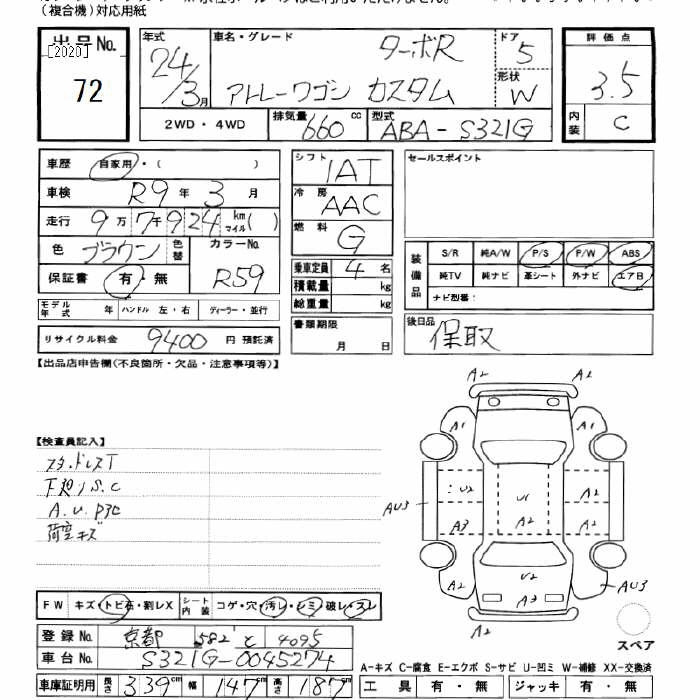 (複合機)対応用紙
出品No.
[2020]
72
年式
24/3月
車名・グレード
ターボR
アトレーワゴン カスタム
ドア
5
形状
W
評価点
3.5
内装
C
2WD・4WD
排気量 660 cc
型式 ABA-S321G
車歴 自家用・( )
車検 R9年 3月
走行 9万7千924 km マイル( )
色 ブラウン 色替
カラーNo. R59
保証書 有・無
モデル年式 年 ハンドル 左・右 ディーラー・並行
リサイクル料金 9400 円 預託済
シフト IAT
冷房 AAC
燃料 G
乗車定員 4名
積載量 kg
総重量 kg
書類期限 月 日
セールスポイント
装備品
S/R 純A/W P/S P/W ABS
純TV 純ナビ 革シート 外ナビ エアB
ナビ型番:
後日品
保取
【出品店申告欄(不良箇所・欠品・注意事項等)】
【検査員記入】
スタッドレスT
下廻りS.C
A.U.P3C
荷室キズ
A2 A2
A1 A1
U2 U1 A2
AU3 A3 A2 A2
U2
A2 A3 A2 AU3
A2
スペア
FW キズ・トビ石・割レX シート内装 コゲ・穴・汚レ・シミ・破レ・スレ
登録No. 京都 582 と 4095
車台No. S321G-0045274
車庫証明用 長さ 339cm 幅 147cm 高さ 187cm
A-キズ C-腐食 E-エクボ S-サビ U-凹ミ W-補修 XX-交換済
工具 有・無 ジャッキ 有・無